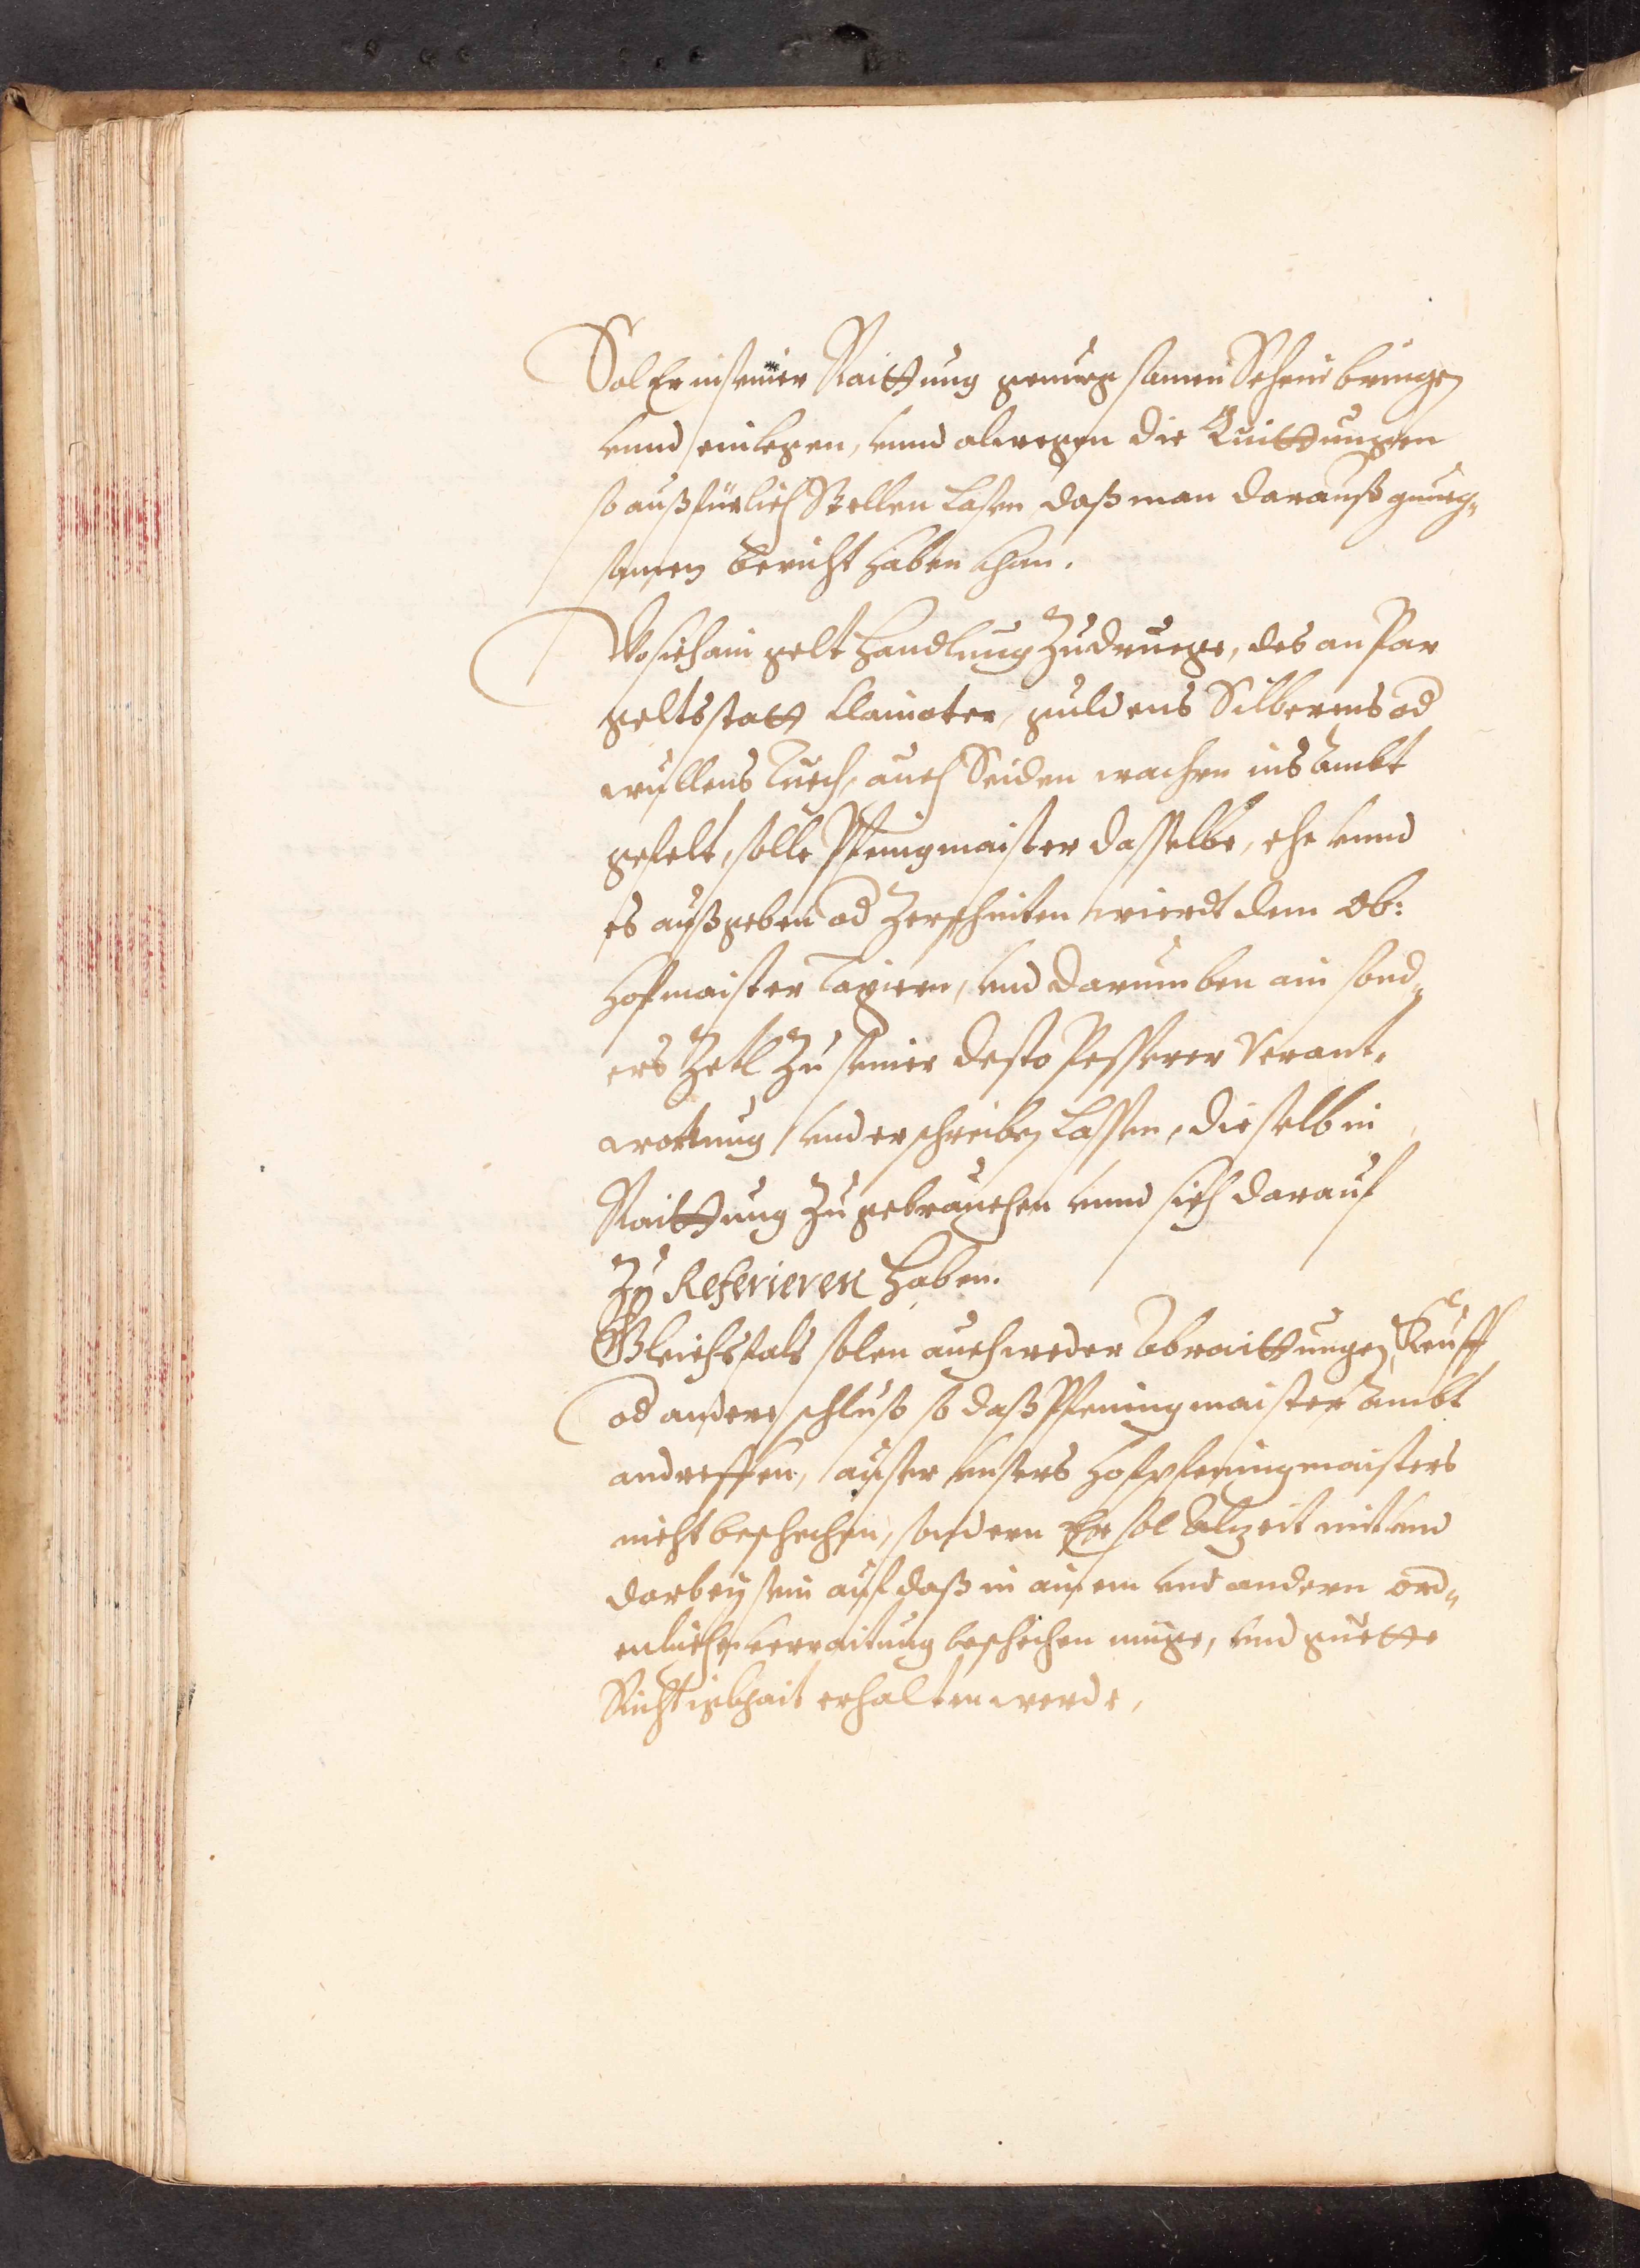 Sol Er in seiner Raittung genueg samen Schein bringen
unnd einlegen, unnd alwegen die Quittungen
so außfürlich Stellen lasen, daß man darauß gnueg„
samen bericht haben khan.
Wo sich ain gelt handlung Zuedruege, das an Par
geltsstatt Clainoter, guldens Silberns od
wullens Tuech, auch Seiden wachren ins Ambt
gefelt, solle Pfenigmaister dasselbe, ehe unnd
es außgeben od Zerschniten wierdt dem Ob:
hofmaister Taxiern, und darumben ain sond„
ers Zetl Zu seiner desto Pesserer Verant„
wortung underschreiben lassen, dieselb in
Raittung Zu gebrauchen unnd sich darauf
Zu Referieren haben.
Gleichsfals solen auch weder Abraittungen, Keuff
od andere schluß so daß Pfeningmaister Ambt
andreffen, auser unsers hofpfeningmaisters
nicht beschechen, sondern Er sol Alzeit mit und
darbey sein auf daß in ainem und andern ord„
enliche verraitung beschechen müge, und guette
Richtigkhait erhalten werde,